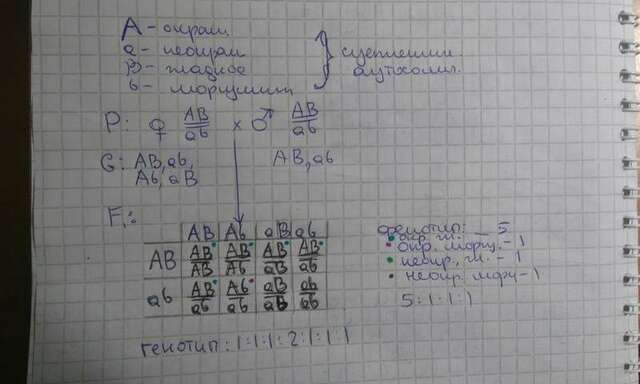 A - окраш
а - неокраш
B - гладкое
b - морщинист
сцепленные
аутосомы.
P: ♀ AB/ab × ♂ AB/ab
G: AB, ab, AB, ab
Ab, aB
F₁:
AB Ab aB ab
AB AB/AB AB/Ab AB/aB AB/ab
ab AB/ab Ab/ab aB/ab ab/ab
фенотип:
окр. гл. - 5
окр. морщ. - 1
неокр. гл. - 1
неокр морщ - 1
5:1:1:1
генотип: 1:1:1:2:1:1:1